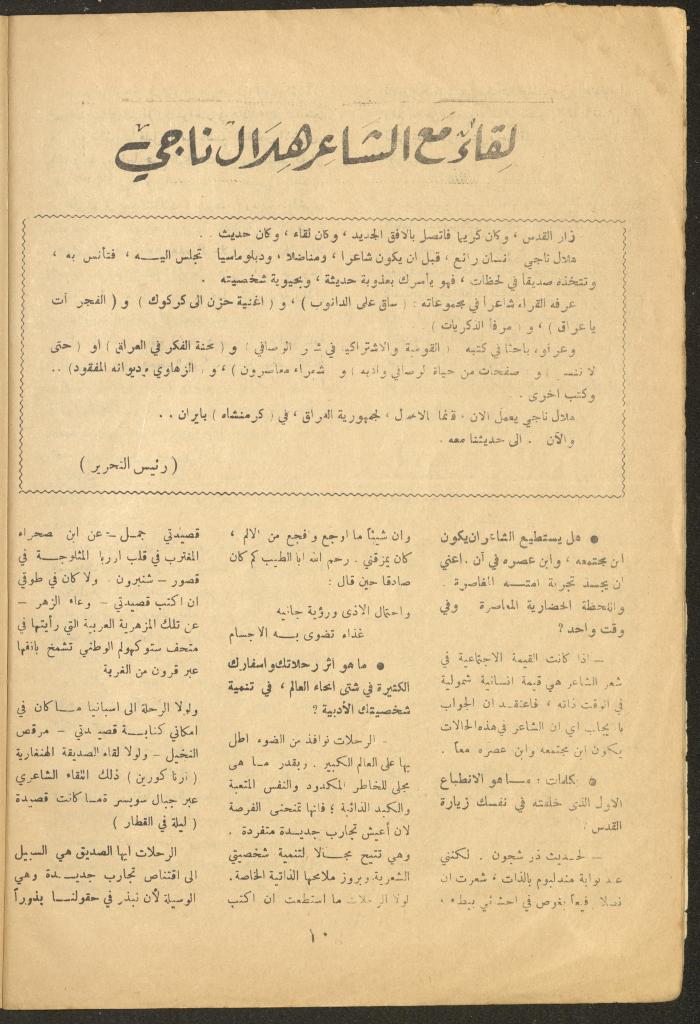 لقاء مع الشاعر هلال ناجي
زار القدس ، وكان كريما فاتصل بالافق الجديد ، وكان لقاء ، وكان حديث . .
هلال ناجي انسان رائع ، قبل ان يكون شاعرا ، ومناضلا ، ودبلوماسيا تجلس اليـــه ، فتأنس به ،
وتتخذه صديقا في لحظات ، فهو يأسرك بعذوبة حديثة ، وبحيوية شخصيته .
عرفه القراء شاعراً في مجموعاته : ( ساق على الدانوب ) ، و ( اغنية حزن الى كركوك ) و ( الفجر آت
يا عراق ) ، و ( مرفأ الذكريات )
وعرفوه باحثا في كتبه ( القومية والاشتراكية في شعر الرصافي ) و ( محنة الفكر في العراق ) او ( حتى
لا ننسى ) و صفحات من حياة الرصافي وادبه ) و شعراء معاصرون ) ، و ( الزهاوي وديوانه المفقود) ..
وكتب اخرى .
هلال ناجي يعمل الان ، قائما بالاعمال ، لجمهورية العراق ، في ( كرمنشاه ) بايران . .
والآن . الى حديثنا معه .
( رئيس التحرير )
● هل يستطيع الشاعر ان يكون
ابن مجتمعه ، وابن عصره في آن . اعني
ان يجسد تجربة امتــه المعاصرة
واللحظة الحضارية المعاصرة وفي
وقت واحد ؟
ــ اذا كانت القيمة الاجتماعية في
شعر الشاعر هي قيمة انسانية شمولية
في الوقت ذاته ، فاعتقد ان الجواب
بالايجاب اي ان الشاعر في هذه الحالات
يكون ابن مجتمعه وابن عصره معاً .
● بكلمات : مــا هو الانطباع
الاول الذي خلفته في نفسك زيارة
القدس ؟
ــ الحديث ذو شجون . لكنني
عند بوابة مندلبوم بالذات ، شعرت ان
نصلا رفيعاً يغوص في احشائي ببطء ،
وان شيئاً ما اوجع وافجع من الالم ،
كان يمزقني . رحم الله ابا الطيب كم كان
صادقا حين قال :
واحتمال الاذى ورؤية جانيه
غذاء تضوى بـــه الاجسام
● ما هو اثر رحلاتك واسفارك
الكثيرة في شتى انحاء العالم ، في تنمية
شخصيتك الأدبية ؟
ــ الرحلات نوافذ من الضوء اطل
بها على العالم الكبير . وبقدر مــا هى
مجلى للخاطر المكدود والنفس المتعبة
والكبد الذائبة ؛ فانها تمنحنى الفرصة
لان أعيش تجارب جديـــدة متفردة .
وهي تتيح مجــالا لتنمية شخصيتي
الشعرية وبروز ملامحها الذاتية الخاصة .
لولا الرحلات ما استطعت ان اكتب
قصيدتي عن ابن صحراء
المغترب في قلب اوربا المثلوجـــة في
قصور ــ شنبرون . ولا كان في طوقي
ان اكتب قصيدتي ــ وعاء الزهر ــ
عن تلك المزهرية العربية التي رأيتها في
متحف ستوكهولم الوطني تشمخ بانفها
عبر قرون من الغربة
ولولا الرحلة الى اسبانيا مــا كان في
امكاني كتابـــة قصيدتي ــ مرقص
النخيل ــ ولولا لقاء الصديقة الهنغارية
( كورين ) ذلك اللقاء الشاعري
عبر جبال سويسر لما كانت قصيدة
( ليلة في القطار )
الرحلات ايها الصديق هي السبيل
الى اقتناص تجارب جديـــدة وهي
الوسيلة لأن نبذر في حقولنـــا بذوراً
١٠